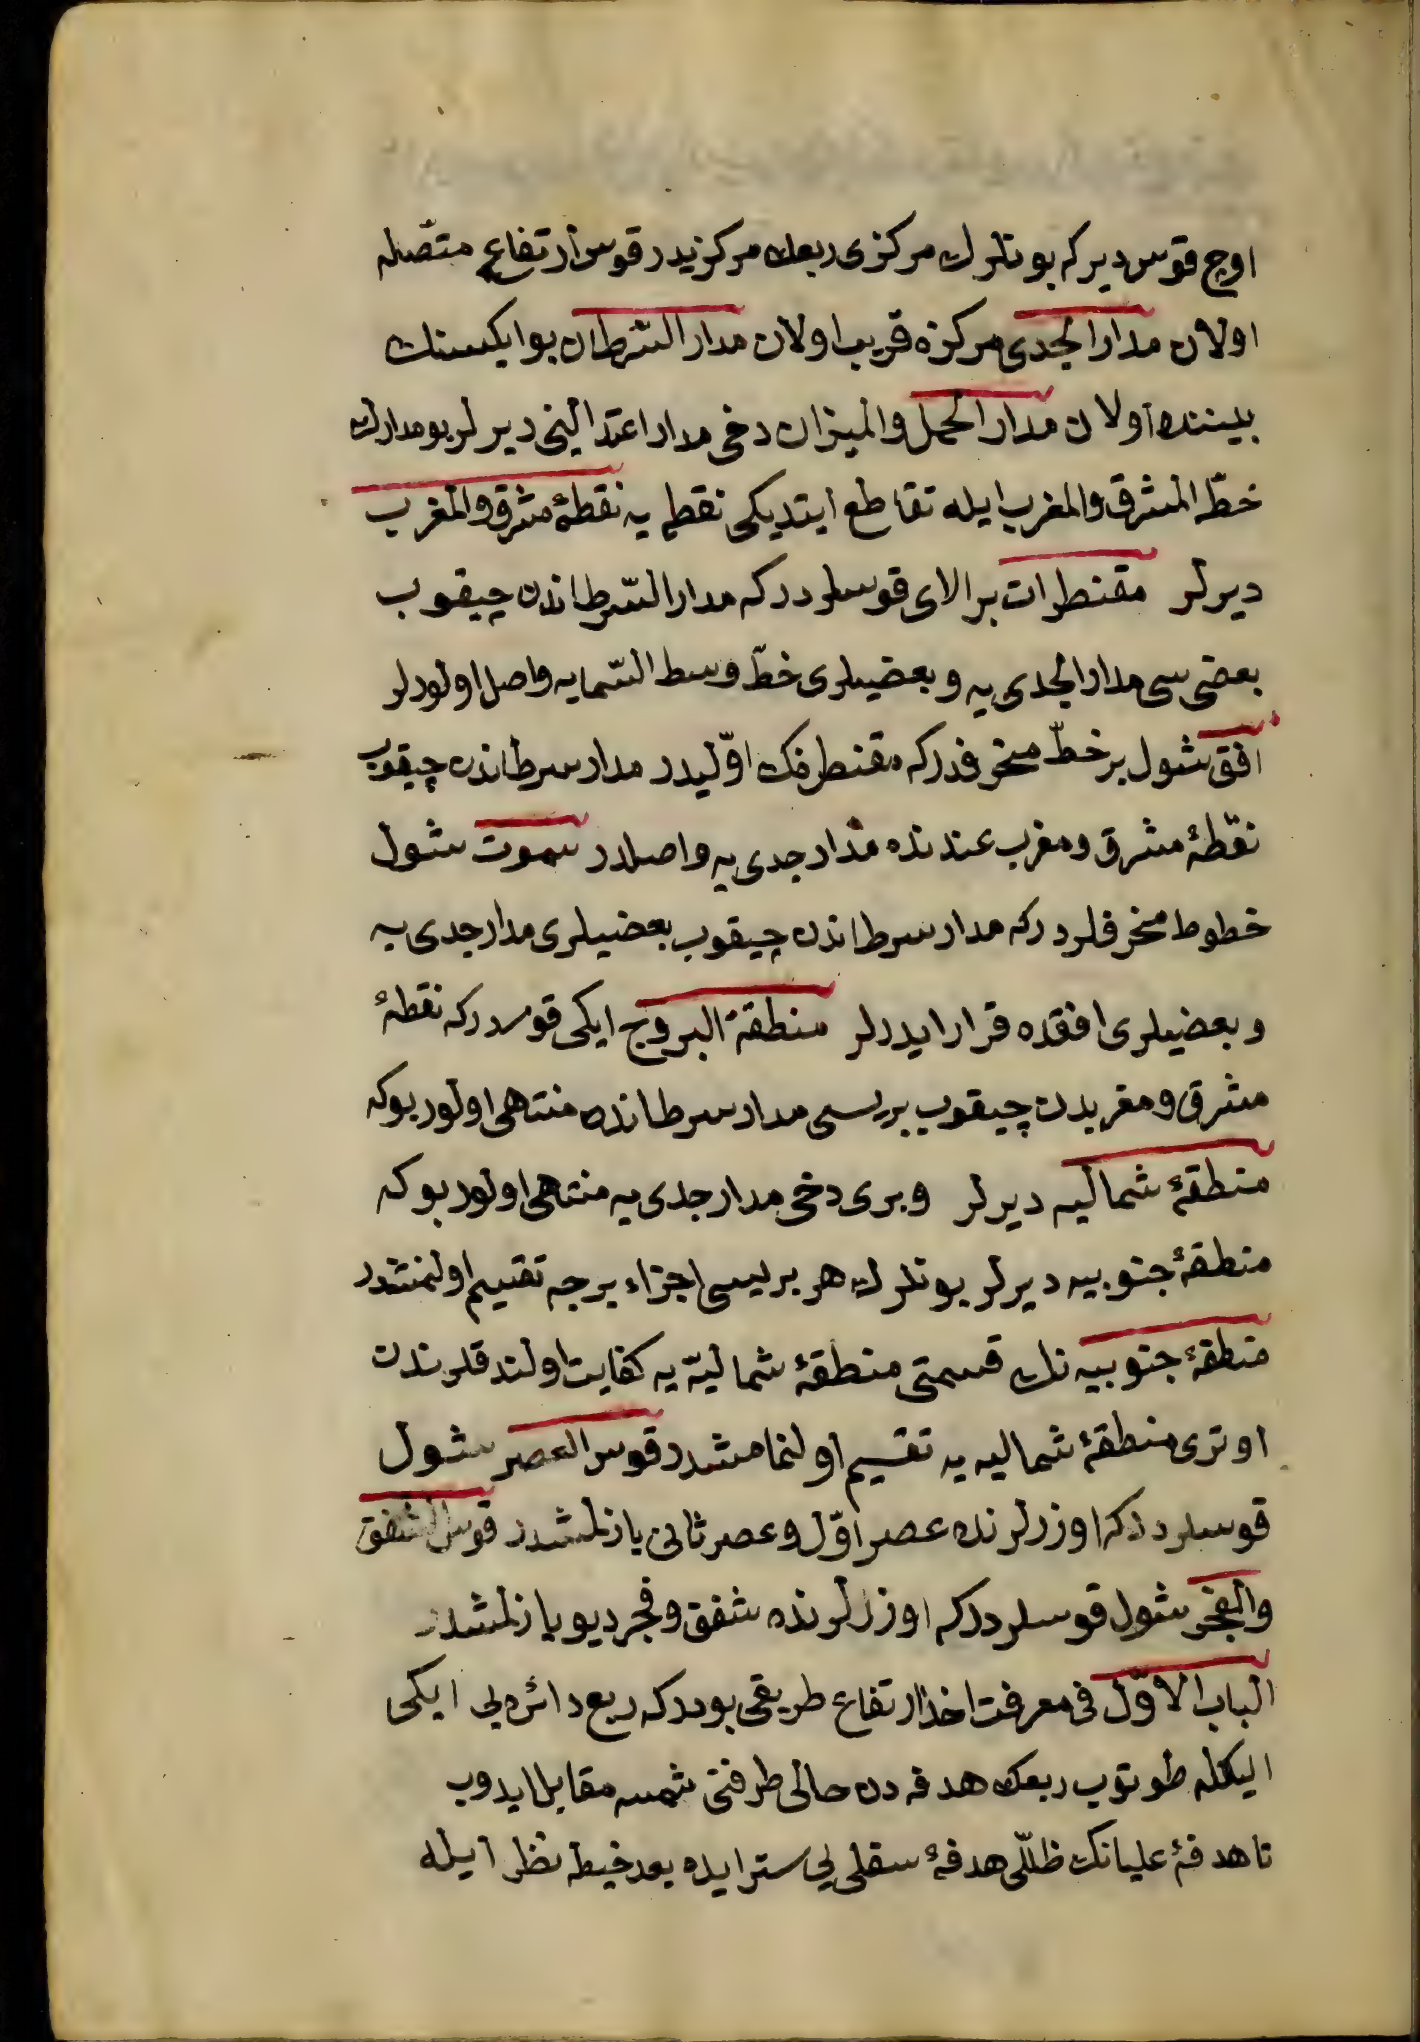 اوج قوس دیرکه بونلرك مرکزی ربعك مرکزیدر قوس ارتفاعه متّصله
اولان مدار الجدی مرکزه قریب اولان مدار السّرطان بو ایکیسنك
بیننده اولان مدار الحمل والمیزان دخی مدار اعتدالینی دیرلر بو مدارك
خطّ المشرق والمغرب ایله تقاطع ایتدیکی نقطه یه نقطهٔ مشرق والمغرب
دیرلر مقنطرات بر الای قوسلردرکه مدار السّرطاندن چیقوب
بعضی سی مدار الجدی یه و بعضیلری خطّ وسط السّمایه واصل اولورلر
افق شول بر خطّ منحرفدرکه مقنطرنك اوّلیدر مدار سرطاندن چیقوب
نقطهٔ مشرق ومغرب عندنده مدار جدی یه واصلدر سموت شول
خطوط منحرفلردرکه مدار سرطاندن چیقوب بعضیلری مدار جدی یه
و بعضیلری افقده قرار ایدرلر منطقة البروج ایکی قوسدرکه نقطهٔ
مشرق ومغربدن چیقوب بریسی مدار سرطانده منتهی اولور بوکه
منطقهٔ شمالیه دیرلر وبری دخی مدار جدی یه منتهی اولور بوکه
منطقهٔ جنوبیه دیرلر بونلرك هر بریسی اجزاء برجه تقسیم اولنمشدر
منطقهٔ جنوبیه نك قسمتی منطقهٔ شمالیّه یه کفایت اولندقلرندن
اوتری منطقهٔ شمالیه یه تقسیم اولنمامشدر قوس العصر شول
قوسلردرکه اوزرلرنده عصر اوّل و عصر ثانی یازلمشدر قوس الشفق
والفجر شول قوسلردرکه اوزرلرنده شفق وفجر دیو یازلمشدر
الباب الاوّل فی معرفت اخذ ارتفاع طریقی بودرکه ربع دائره یی ایکی
الیکله طوتوب ربعك هدفه دن حالی طرفنی شمسه مقابل ایدوب
تا هدفهٔ علیانك ظلّی هدفهٔ سفلی یی ستر ایده بعد خیطه نظر ایله